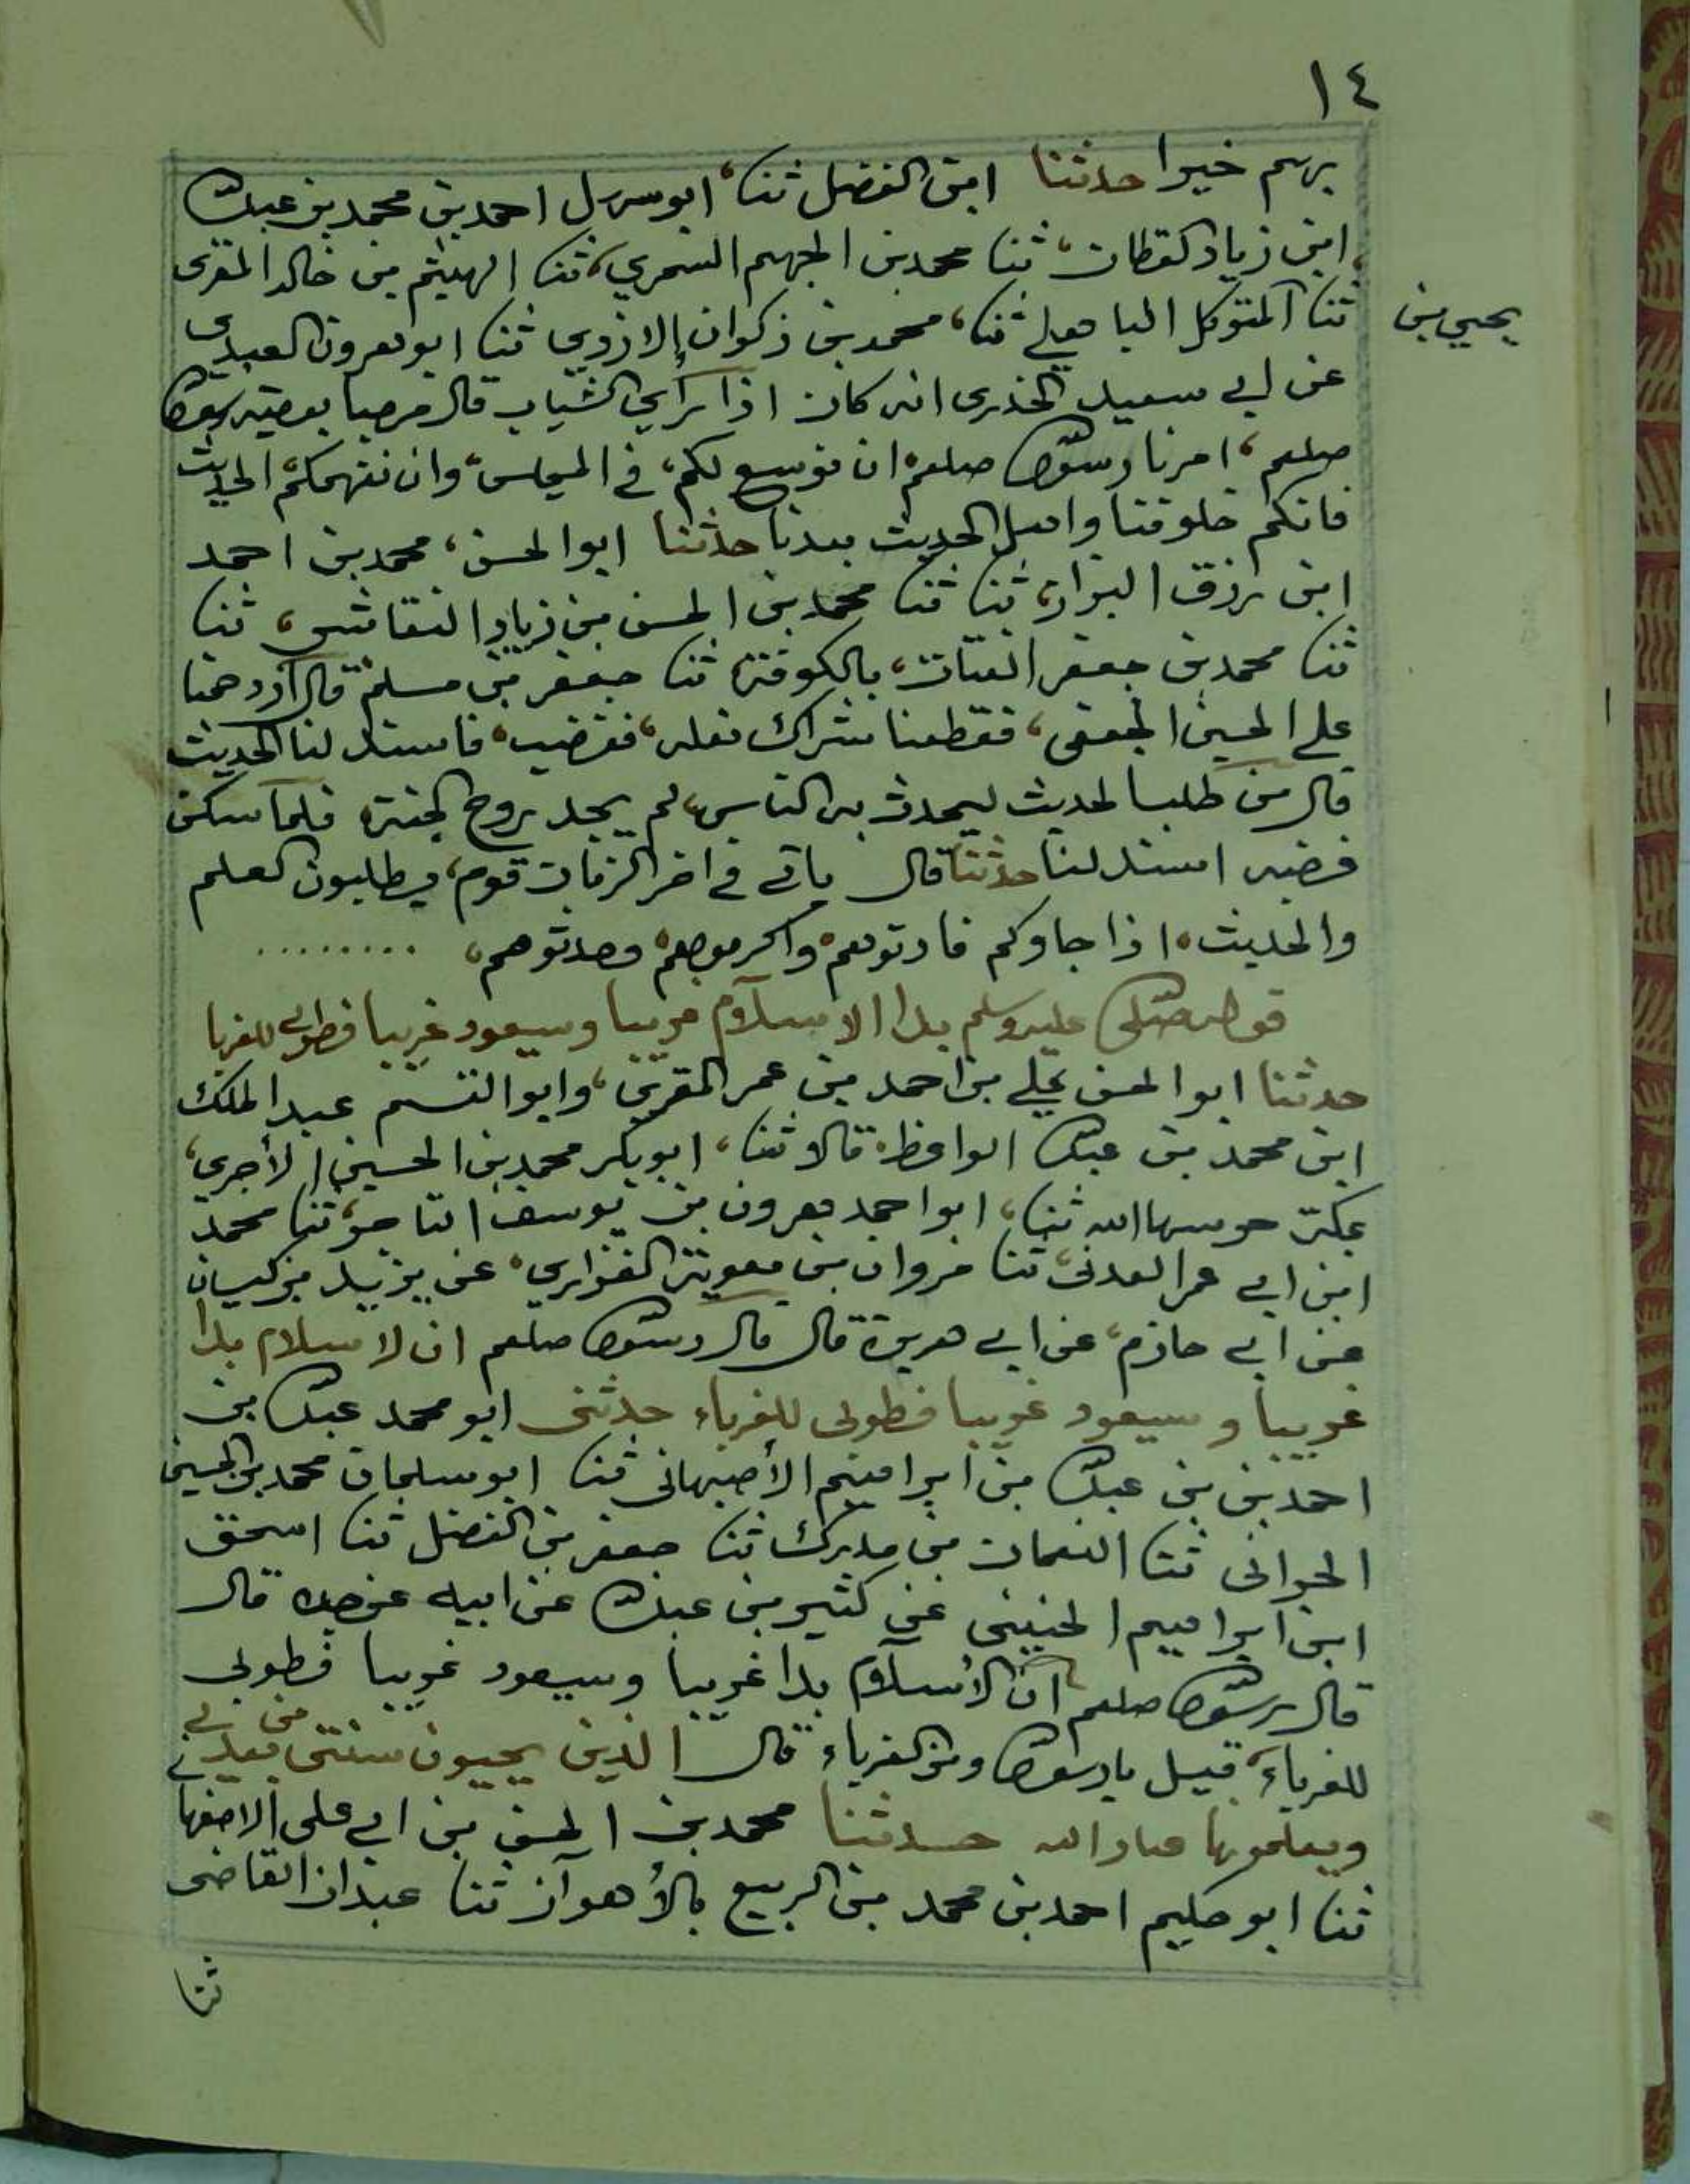 ١٤
بهم خيرا حدثنا ابن الفضل ثنا، ابو سهل احمد بن محمد بن عبد الله
ابن زياد القطان، ثنا محمد بن الجهم السمري، ثنا الهيثم بن خالد المقرى
يحيي بن
ثنا المتوكل ثنا، محمد بن ذكوان الازدي ثنا ابو هرون العبدى
عن ابي سعيد الخدرى انه كان اذا راي الشباب قال مرحبا بوصية رسول الله
صلعم، امرنا رسول الله صلعم ان نوسع لكم، في المجلس، وان نفهمكم، الحديث
فانكم خلوفنا واهل الحديث بعدنا حدثنا ابو الحسن، محمد بن احمد
ابن رزق البزاز، ثنا ثنا محمد بن الحسن بن زياد النقاش، ثنا
ثنا محمد بن جعفر القتات، بالكوفة ثنا جعفر بن مسلم قال ازدحمنا
علي الحسين الجعفى، فقطعنا شراك نعله، فغضب، فاسند لنا الحديث
قال من طلب الحديث ليحدث به الناس، لم يجد روح الجنة فلما سكن
غضبه اسند لنا حدثنا قال ياتي في اخر الزمان قوم، يطلبون العلم
والحديث، اذا جاوكم فادنوهم، واكرموهم، وحدثوهم، ........
قوله صلى الله عليه وسلم بدا الاسلام غريبا وسيعود غريبا فطوبي للغربا
حدثنا ابو الحسن علي بن احمد بن عمر المقري، وابو القسم عبد الملك
ابن محمد بن عبد الله الواعظ، قالا ثنا، ابو بكر محمد بن الحسين الأجري،
بمكة حرسها الله ثنا، ابو احمد هرون بن يوسف التاجر، ثنا محمد
ابن ابي عمر العدنى، ثنا مروان بن معوية الفزاري، عن يزيد بن كيسان
عن ابي حازم، عن ابي هريرة قال قال رسول الله صلعم ان لاسلام بدا
غريبا و سيعود غريبا فطوبى للغرباء حدثنى ابو محمد عبد الله بن
احمد بن بن عبد الله بن ابراهيم الأصبهانى ثنا ابو سليمان محمد بن الحسين
الحرانى ثنا النعمان بن مدرك ثنا جعفر بن الفضل ثنا اسحق
ابن ابراهيم الحنينى عن كثير بن عبد الله عن ابيه عن جده قال
قال رسول الله صلعم ان الأسلام بدا غريبا وسيعود غريبا فطوبى
للغرباء، قيل يا رسول الله ومن الغرباء قال الذين يحيون سنتى من بعدى
ويعلمونها عباد الله حدثنا محمد بن الحسن بن ابي على الاصفها
ثنا ابو حكيم احمد بن محمد بن الربيع بالأهواز ثنا عبدان القاضى
ثنا